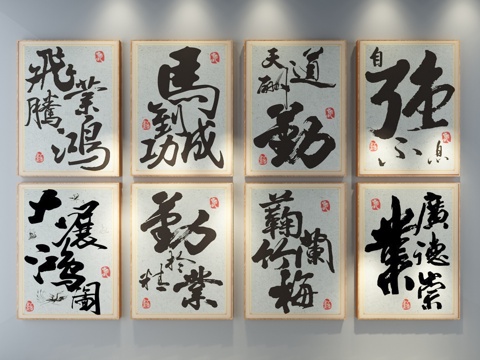 飛騰
業鴻
馬
到成
功
天道
酬
勤
自強
不息
大展
鴻圖
勤
於
精業
蘜
竹蘭
梅
廣德崇
業